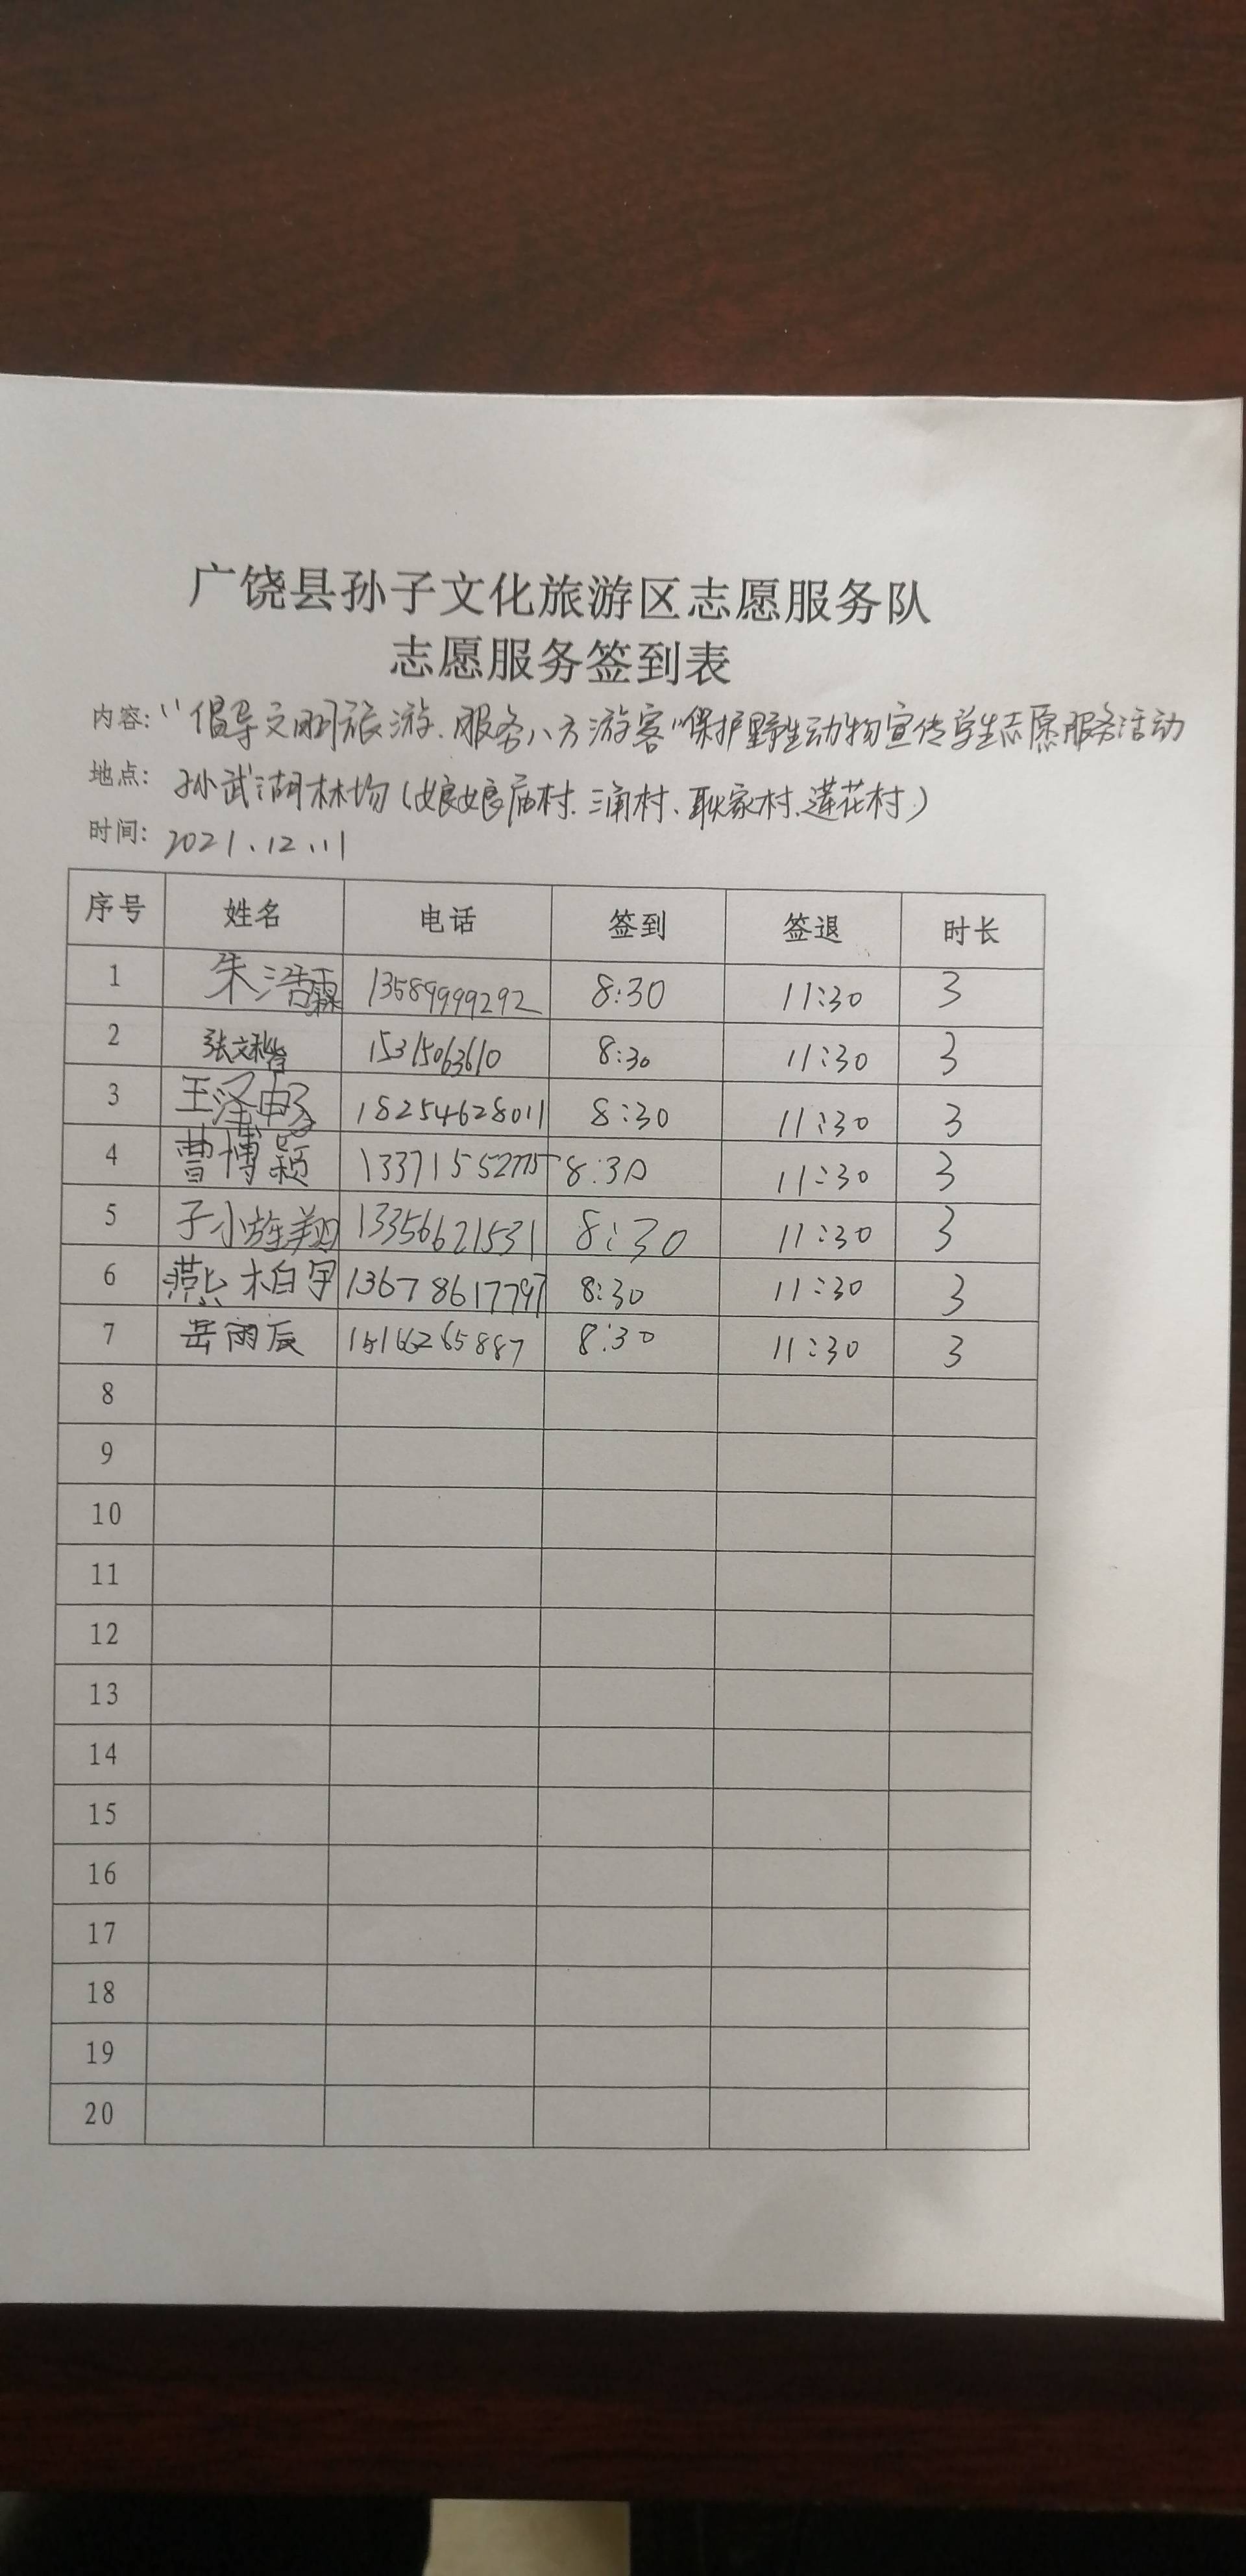 广饶县孙子文化旅游区志愿服务队
志愿服务签到表
内容:"倡导文明旅游.服务八方游客"保护野生动物宣传学生志愿服务活动
地点:孙武湖林场(娘娘庙村.三角村、耿家村.莲花村)
时间:2021.12.11
序号 姓名 电话 签到 签退 时长
1 朱浩霖 13589999292 8:30 11:30 3
2 张文楷 15315063610 8:30 11:30 3
3 王泽畅 18254628011 8:30 11:30 3
4 曹博颖 13371552775 8:30 11:30 3
5 子小旌翔 13356621531 8:30 11:30 3
6 燕柏宇 13678617797 8:30 11:30 3
7 岳雨辰 15166265887 8:30 11:30 3
8
9
10
11
12
13
14
15
16
17
18
19
20